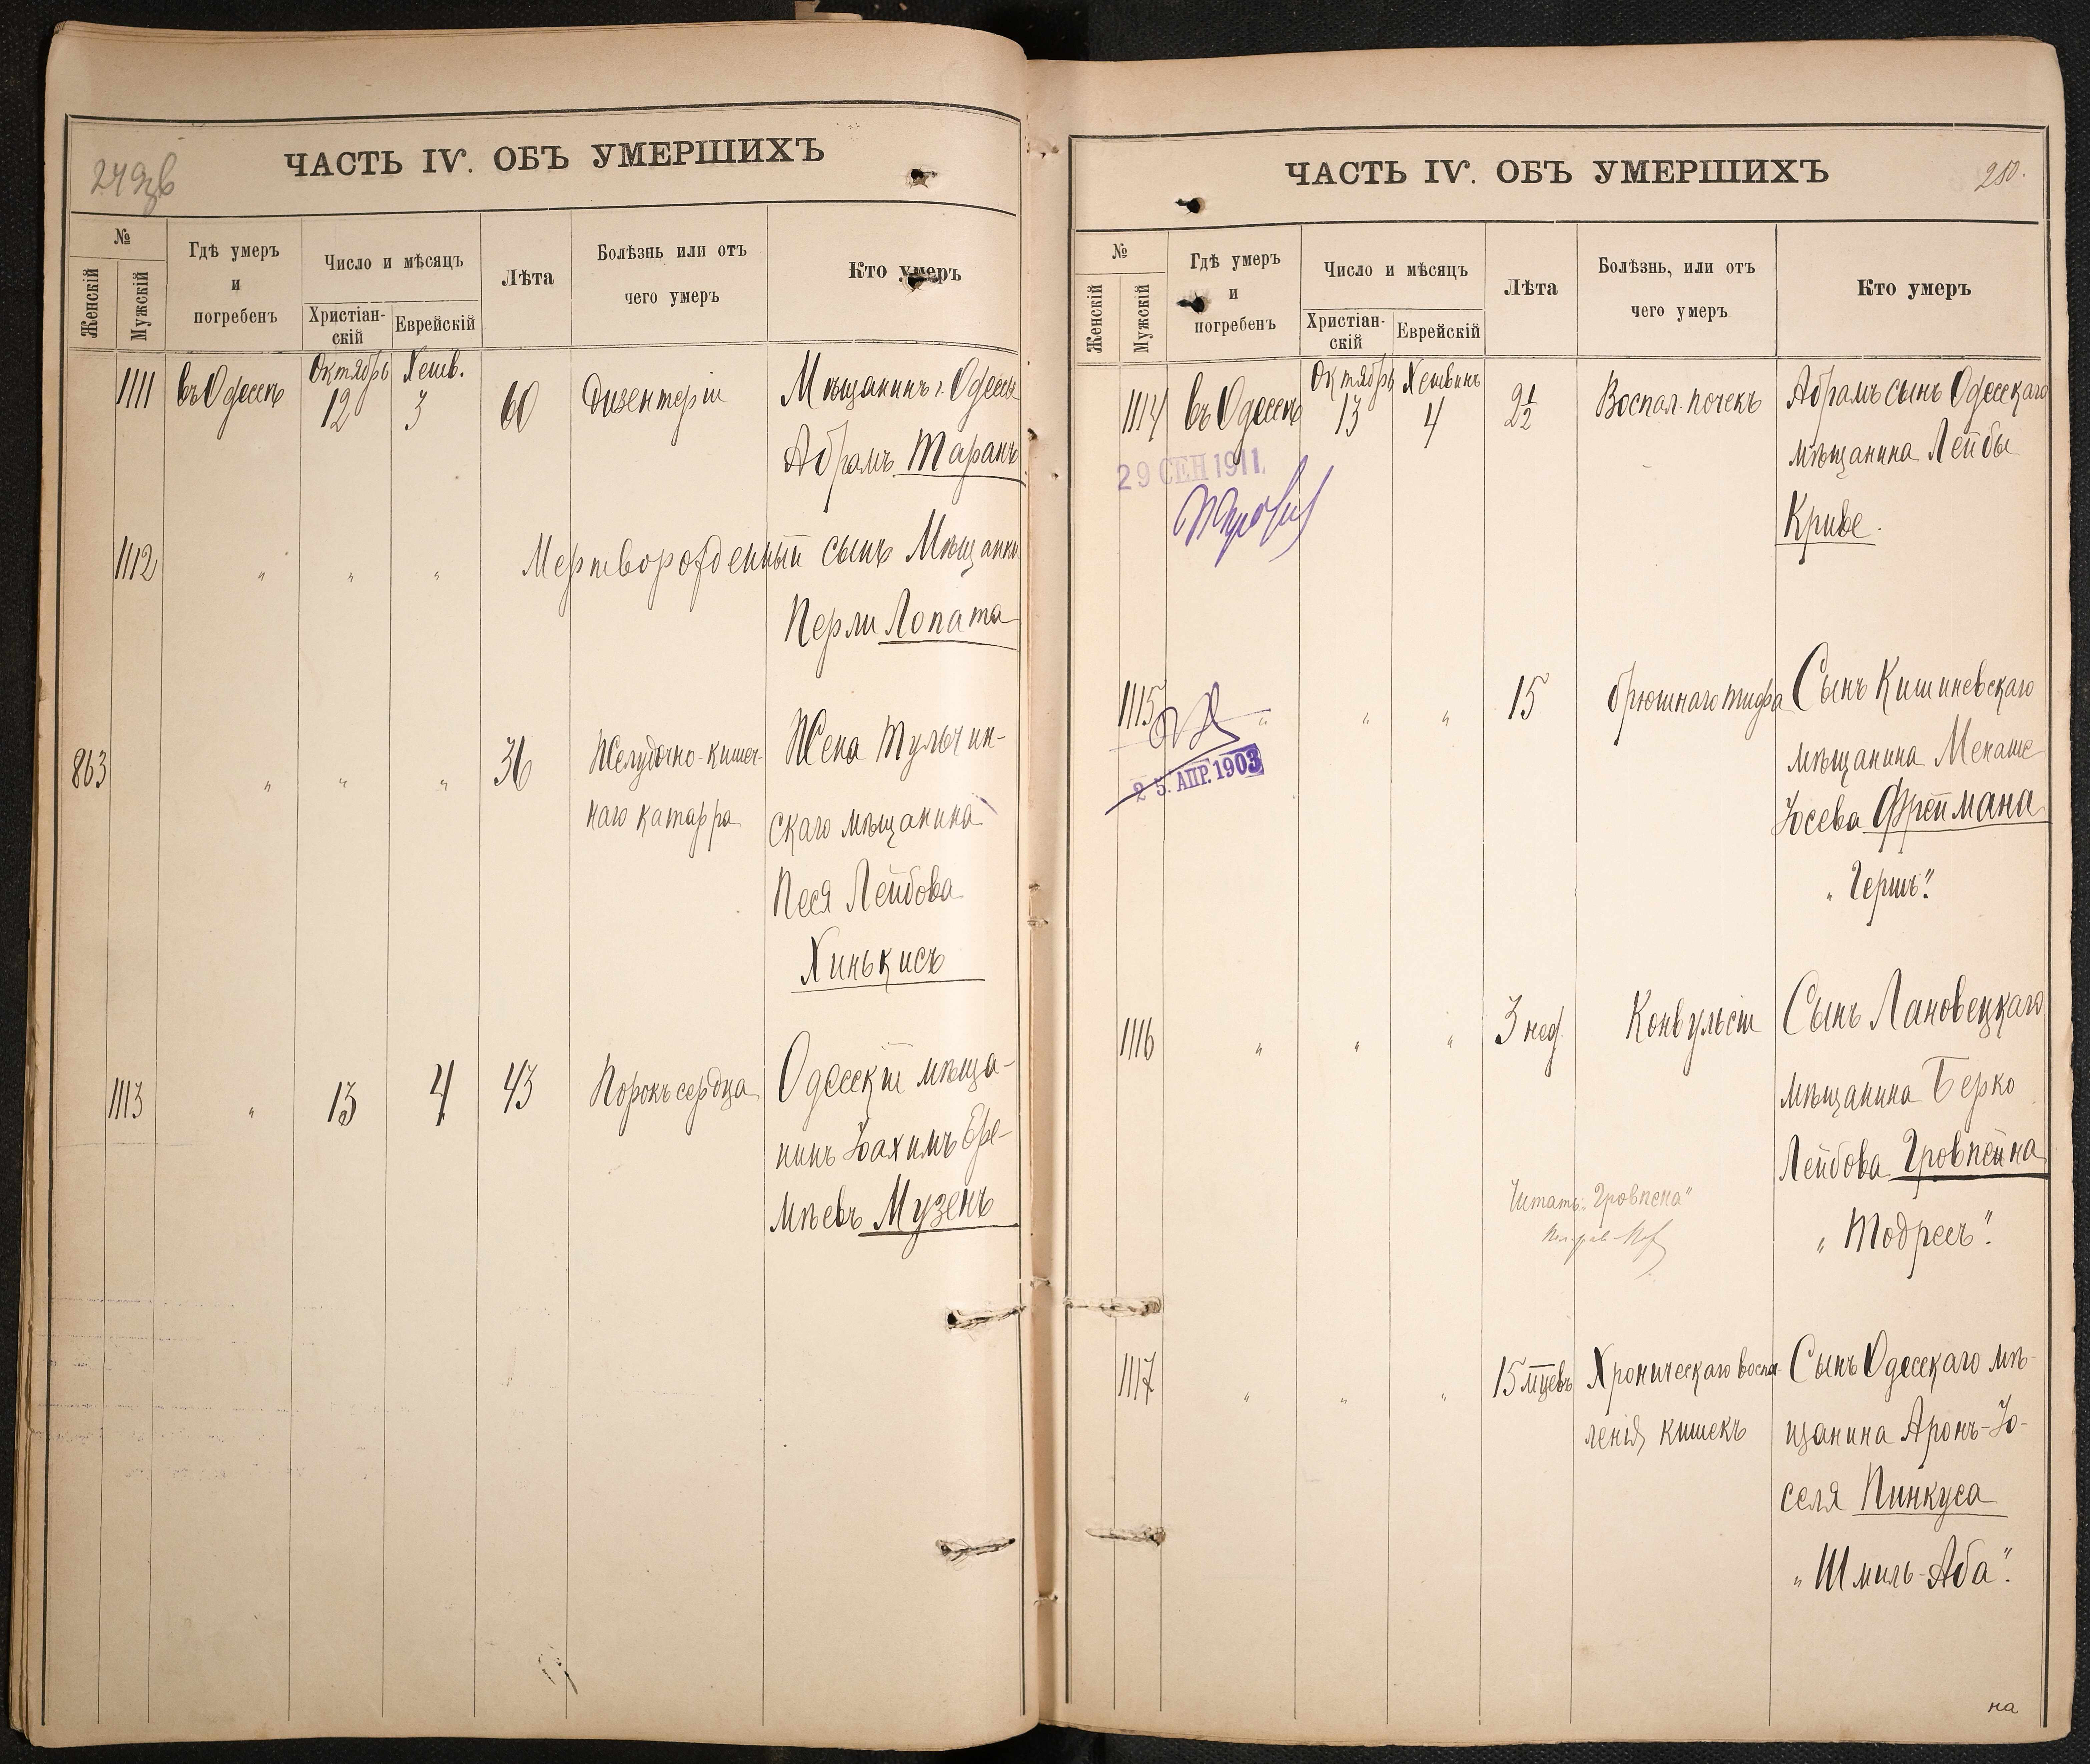 249зв
ЧАСТЬ IV. ОБЪ УМЕРШИХЪ
№
Женскій
Мужскій
Гдѣ умеръ
и
погребенъ
Число и мѣсяцъ
Христіан-
скій
Еврейскій
Лѣта
Болѣзнь или отъ
чего умеръ
Кто умеръ
1111 въ Одессѣ Октябрь 12 Хешв. 3 60 Дизентеріи Мѣщанинъ г. Одессы
Абрамъ Таранъ
1112 " " " Мертворожденный сынъ Мѣщанки
Перли Лопата
863 " " " 36 Желудочно-кишеч- Жена Тульчин-
наго катарра скаго мѣщанина
Песя Лейбова
Хинькисъ
1113 " 13 4 43 Порокъ сердца Одесскій мѣща-
нинъ Іоахимъ Ере-
мѣевъ Музенъ
ЧАСТЬ IV. ОБЪ УМЕРШИХЪ
250.
№
Женскій
Мужскій
Гдѣ умеръ
и
погребенъ
Число и мѣсяцъ
Христіан-
скій
Еврейскій
Лѣта
Болѣзнь, или отъ
чего умеръ
Кто умеръ
1114 въ Одессѣ Октябрь 13 Хешвинъ 4 2 1/2 Воспал. почекъ Абрамъ сынъ Одесскаго
мѣщанина Лейбы
Криве.
29 СЕН 1911.
1115 " " " 15 брюшнаго тифа Сынъ Кишиневскаго
мѣщанина Менаше
Іосева Фреймана
"Гершъ".
25. АПР. 1903
1116 " " " 3 нед. Конвульсіи Сынъ Лановецкаго
мѣщанина Берко
Лейбова Гровпейна
"Тодресъ".
Читать: "Гровпена"
1117 " " " 15 мцевъ Хроническаго воспа- Сынъ Одесскаго мѣ-
ленія кишекъ щанина Аронъ-Іо-
селя Пинкуса
"Шмиль-Аба".
на